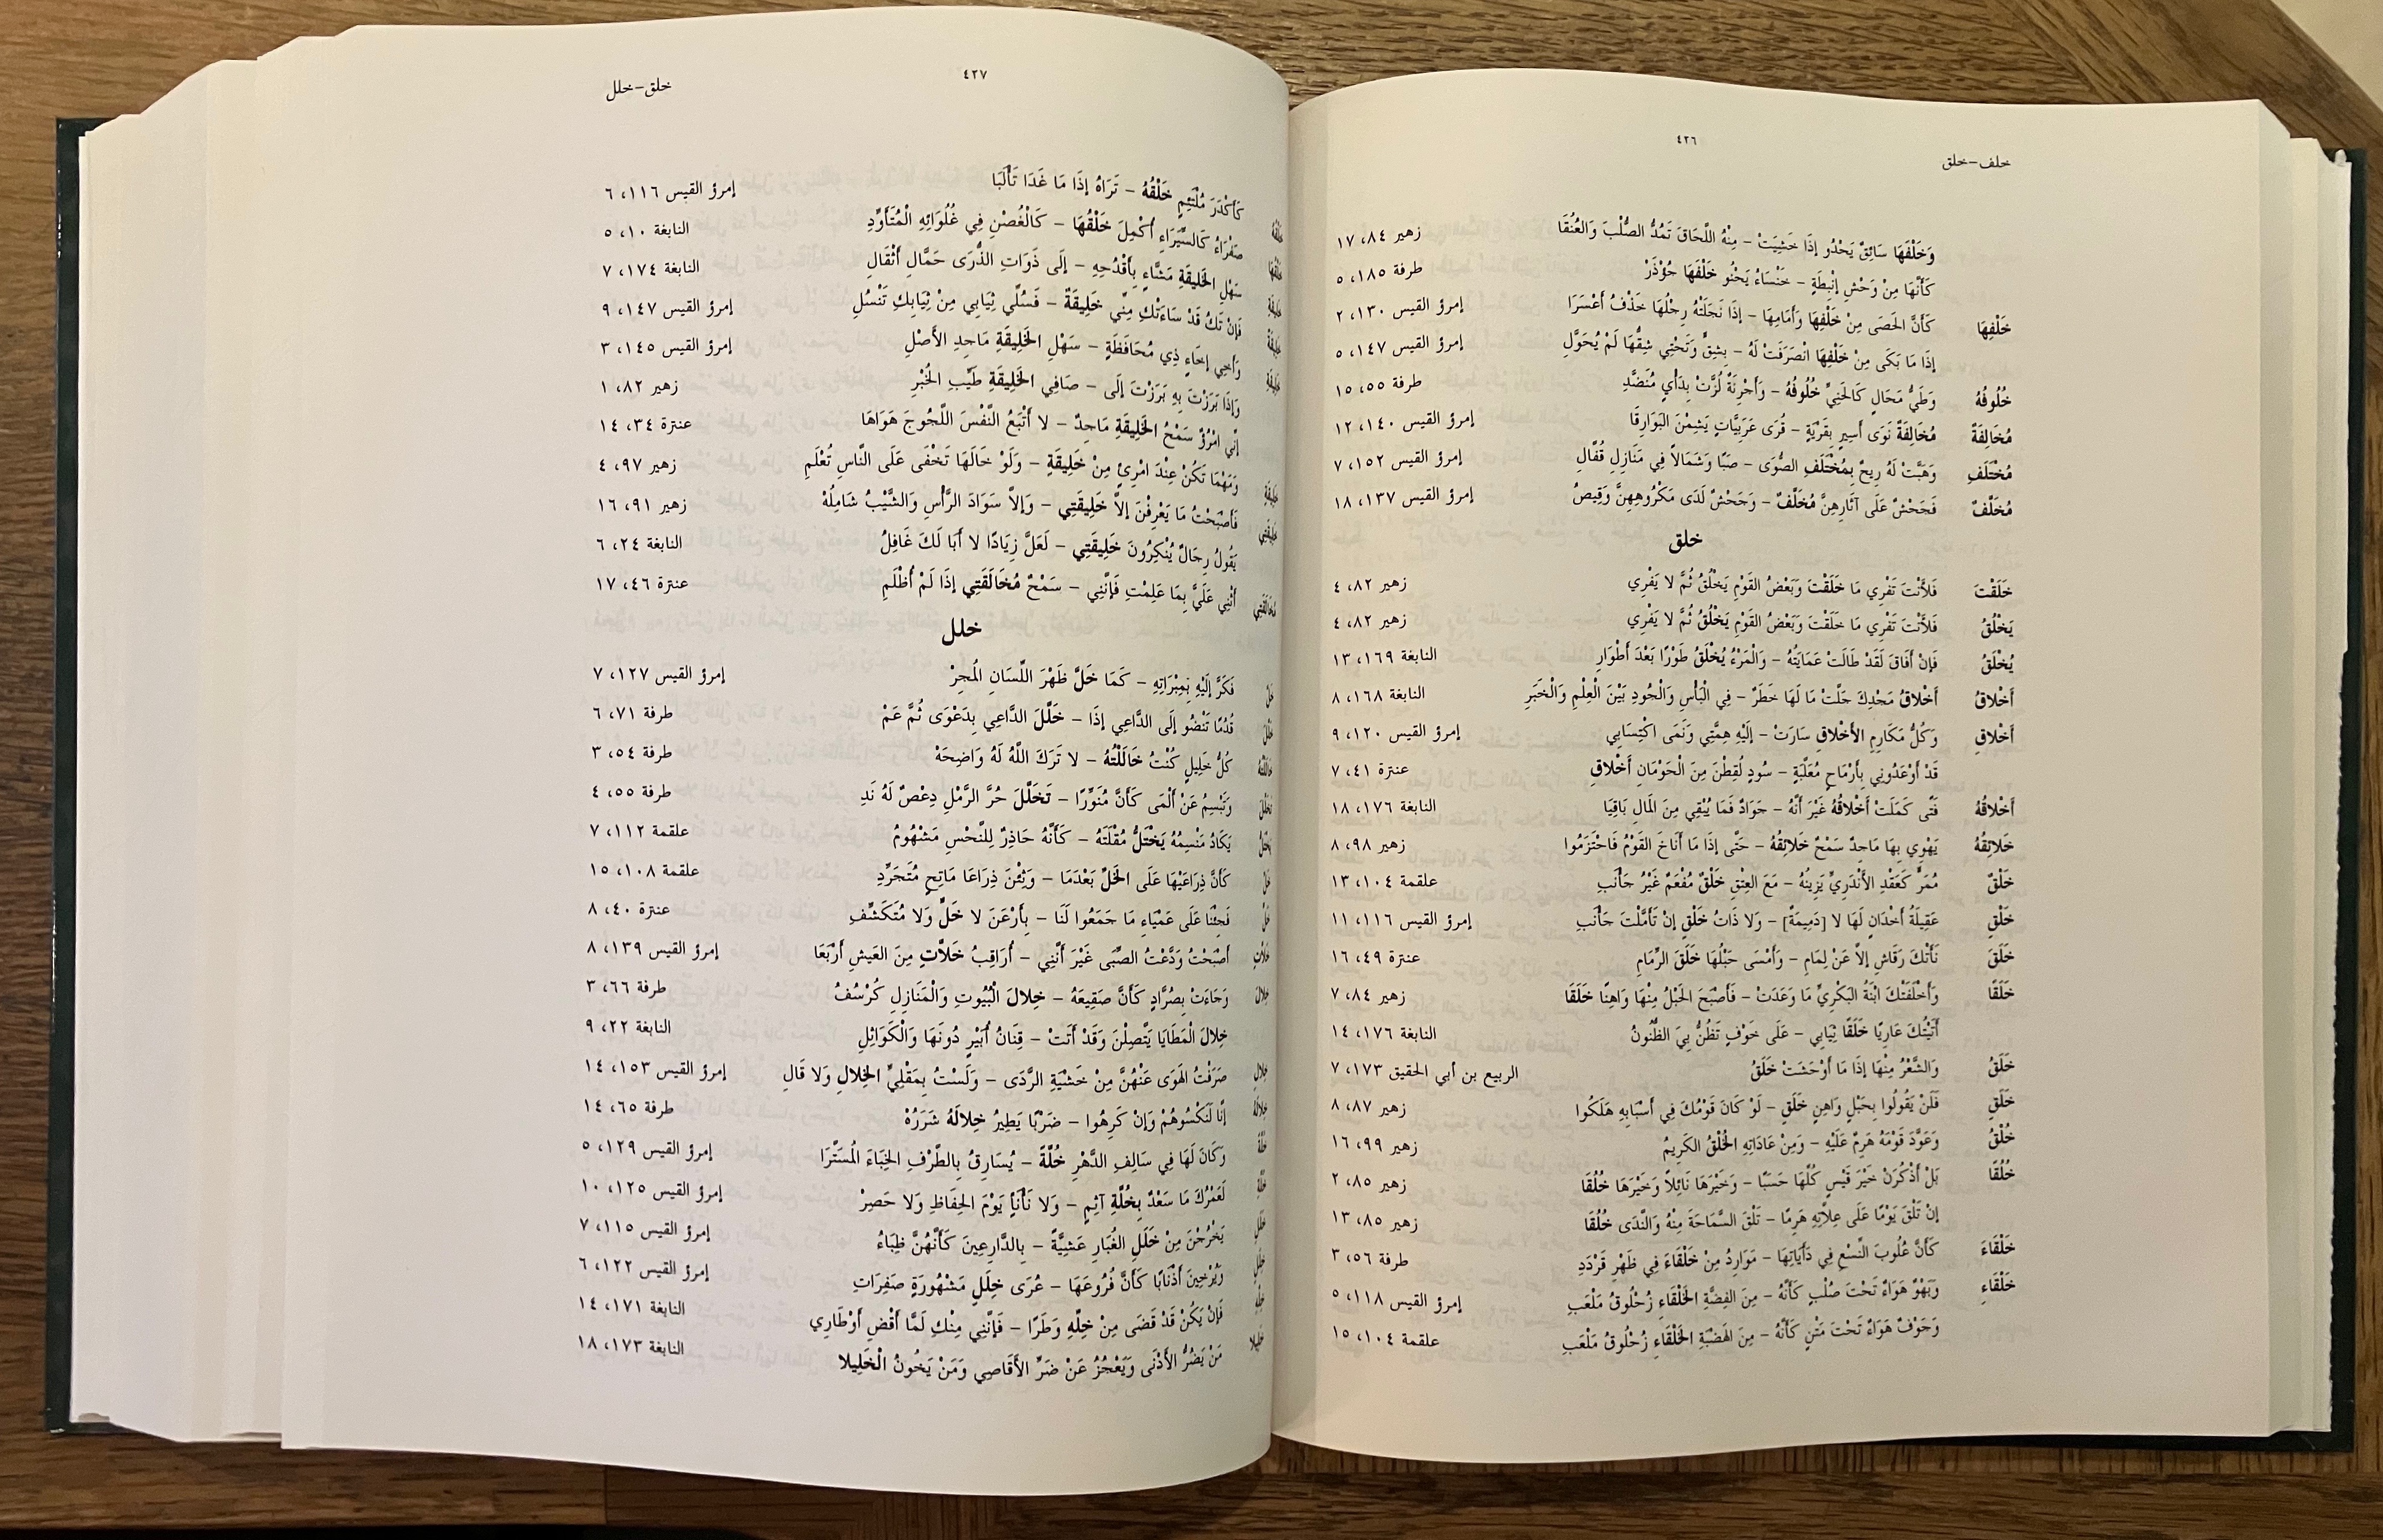 ٤٢٦
خلف-خلق
وَخَلْفَهَا سَائِقٌ يَحْدُو إذَا خَشِيَتْ - مِنْهُ اللَّحَاقَ تَمُدُّ الصُّلْبَ وَالعُنُقَا زهير ٨٤، ١٧
كَأَنَّهَا مِنْ وَحْشِ إنْبِطَةٍ - خَنْسَاءُ يَحْنُو خَلْفَهَا جُؤْذَرْ طرفة ١٨٥، ٥
خَلْفِهَا كَأَنَّ الحَصَى مِنْ خَلْفِهَا وَأَمَامِهَا - إذَا نَجَلَتْهُ رِجْلُهَا خَذْفُ أَعْسَرَا إمرؤ القيس ١٣٠، ٢
إذَا مَا بَكَى مِنْ خَلْفِهَا انْصَرَفَتْ لَهُ - بِشِقٍّ وَتَحْتِي شِقُّهَا لَمْ يُحَوَّلِ إمرؤ القيس ١٤٧، ٥
خُلُوفُهُ وَطَيُّ مَحَالٍ كَالحَنِيِّ خُلُوفُهُ - وَأَجْرِنَةٌ لُزَّتْ بِدَأْيٍ مُنَضَّدِ طرفة ٥٥، ١٥
مُخَالِفَةً مُخَالِفَةً نَوَى أَسِيرٍ بِقَرْيَةٍ - قُرَى عَرَبِيَّاتٍ يَشِمْنَ البَوَارِقَا إمرؤ القيس ١٤٠، ١٢
مُخْتَلَفِ وَهَبَّتْ لَهُ رِيحٌ بِمُخْتَلَفِ الصُّوَى - صَبًا وَشَمَالاً فِي مَنَازِلِ قُفَّالِ إمرؤ القيس ١٥٢، ٧
مُخَلَّفٌ فَجَحْشٌ عَلَى آثَارِهِنَّ مُخَلَّفٌ - وَجَحْشٌ لَدَى مَكْرُوهِهِنَّ وَقِيصُ إمرؤ القيس ١٣٧، ١٨
خلق
خَلَقْتَ فَلَأَنْتَ تَفْرِي مَا خَلَقْتَ وَبَعْضُ القَوْمِ يَخْلُقُ ثُمَّ لا يَفْرِي زهير ٨٢، ٤
يَخْلُقُ فَلَأَنْتَ تَفْرِي مَا خَلَقْتَ وَبَعْضُ القَوْمِ يَخْلُقُ ثُمَّ لا يَفْرِي زهير ٨٢، ٤
يُخْلَقُ فَإنْ أَفَاقَ لَقَدْ طَالَتْ عَمَايَتُهُ - وَالْمَرْءُ يُخْلَقُ طَوْرًا بَعْدَ أَطْوَارِ النابغة ١٦٩، ١٣
أَخْلاقُ أَخْلاقُ مَجْدِكَ حَلَّتْ مَا لَهَا خَطَرٌ - فِي الْبَأْسِ وَالْجُودِ بَيْنَ الْعِلْمِ وَالْخَبَرِ النابغة ١٦٨، ٨
أَخْلاقِ وَكُلُّ مَكَارِمِ الأَخْلاقِ سَارَتْ - إلَيْهِ هِمَّتِي وَنَمَى اكْتِسَابِي إمرؤ القيس ١٢٠، ٩
قَدْ أَوْعَدُونِي بِأَرْمَاحٍ مُعَلَّبَةٍ - سُودٍ لُقِطْنَ مِنَ الحَوْمَانِ أَخْلاقِ عنترة ٤١، ٧
أَخْلاقُهُ فَتًى كَمَلَتْ أَخْلاقُهُ غَيْرَ أَنَّهُ - جَوَادٌ فَمَا يُبْقِي مِنَ المَالِ بَاقِيَا النابغة ١٧٦، ١٨
خَلائِقُهُ يَهْوِي بِهَا مَاجِدٌ سَمْحٌ خَلائِقُهُ - حَتَّى إذَا مَا أَنَاخَ القَوْمُ فَاحْتَزَمُوا زهير ٩٨، ٨
خَلْقٌ مُمَرٌّ كَعَقْدِ الأَنْدَرِيِّ يَزِينُهُ - مَعَ العِتْقِ خَلْقٌ مُفْعَمٌ غَيْرُ جَأْنَبِ علقمة ١٠٤، ١٣
خَلْقٍ عَقِيلَةُ أَخْدَانٍ لَهَا لا [دَمِيمَةٌ] - وَلا ذَاتُ خَلْقٍ إنْ تَأَمَّلْتَ جَأْنَبِ إمرؤ القيس ١١٦، ١١
خَلَقَ نَأَتْكَ رَقَاشِ إلاَّ عَنْ لِمَامِ - وَأَمْسَى حَبْلُهَا خَلَقَ الرِّمَامِ عنترة ٤٩، ١٦
خَلَقَا وَأَخْلَفَتْكَ ابْنَةُ البَكْرِيِّ مَا وَعَدَتْ - فَأَصْبَحَ الحَبْلُ مِنْهَا وَاهِنًا خَلَقَا زهير ٨٤، ٧
أَتَيْتُكَ عَارِيًا خَلَقًا ثِيَابِي - عَلَى خَوْفٍ تَظُنُّ بِيَ الظُّنُونُ النابغة ١٧٦، ١٤
خَلَقُ وَالشَّعْرُ مِنْهَا إذَا مَا أَوْحَشَتْ خَلَقُ الربيع بن أبي الحقيق ١٧٣، ٧
خَلَقٍ فَلَنْ يَقُولُوا بِحَبْلٍ وَاهِنٍ خَلَقٍ - لَوْ كَانَ قَوْمُكَ فِي أَسْبَابِهِ هَلَكُوا زهير ٨٧، ٨
خُلُقُ وَعَوَّدَ قَوْمَهُ هَرِمٌ عَلَيْهِ - وَمِنْ عَادَاتِهِ الخُلُقُ الكَرِيمُ زهير ٩٩، ١٦
خُلُقَا بَلْ اذْكُرَنْ خَيْرَ قَيْسٍ كُلِّهَا حَسَبًا - وَخَيْرَهَا نَائِلاً وَخَيْرَهَا خُلُقَا زهير ٨٥، ٢
إنْ تَلْقَ يَوْمًا عَلَى عِلاَّتِهِ هَرِمًا - تَلْقَ السَّمَاحَةَ مِنْهُ وَالنَّدَى خُلُقَا زهير ٨٥، ١٣
خَلْقَاءَ كَأَنَّ عُلُوبَ النِّسْعِ فِي دَأَيَاتِهَا - مَوَارِدُ مِنْ خَلْقَاءَ فِي ظَهْرِ قَرْدَدِ طرفة ٥٦، ٣
خَلْقَاءِ وَبَهْوٌ هَوَاءٌ تَحْتَ صُلْبٍ كَأَنَّهُ - مِنَ الهَضْبَةِ الخَلْقَاءِ زُحْلُوقُ مَلْعَبِ إمرؤ القيس ١١٨، ٥
وَجَوْفٌ هَوَاءٌ تَحْتَ مَتْنٍ كَأَنَّهُ - مِنَ الهَضْبَةِ الخَلْقَاءِ زُحْلُوقُ مَلْعَبِ علقمة ١٠٤، ١٥
٤٢٧
خلق-خلل
كَأَكْدَرَ مُلْتَئِمٍ خَلْقُهُ - تَرَاهُ إذَا مَا غَدَا تَأْلَبَا إمرؤ القيس ١١٦، ٦
صَفْرَاءُ كَالسِّيَرَاءِ أُكْمِلَ خَلْقُهَا - كَالْغُصْنِ فِي غُلُوَائِهِ الْمُتَأَوِّدِ النابغة ١٠، ٥
سَهْلِ الخَلِيقَةِ مَشَّاءٍ بِأَقْدُحِهِ - إلَى ذَوَاتِ الذُّرَى حَمَّالِ أَثْقَالِ النابغة ١٧٤، ٧
فَإنْ تَكُ قَدْ سَاءَتْكِ مِنِّي خَلِيقَةٌ - فَسُلِّي ثِيَابِي مِنْ ثِيَابِكِ تَنْسُلِ إمرؤ القيس ١٤٧، ٩
وَأَخِي إخَاءٍ ذِي مُحَافَظَةٍ - سَهْلِ الخَلِيقَةِ مَاجِدِ الأَصْلِ إمرؤ القيس ١٤٥، ٣
وَإذَا بَرَزْتَ بِهِ بَرَزْتَ إلَى - صَافِي الخَلِيقَةِ طَيِّبِ الخُبْرِ زهير ٨٢، ١
إنِّي امْرُؤٌ سَمْحُ الخَلِيقَةِ مَاجِدٌ - لا أَتْبَعُ النَّفْسَ اللَّجُوجَ هَوَاهَا عنترة ٣٤، ١٤
خَلِيقَةٍ وَمَهْمَا تَكُنْ عِنْدَ امْرِئٍ مِنْ خَلِيقَةٍ - وَلَوْ خَالَهَا تَخْفَى عَلَى النَّاسِ تُعْلَمِ زهير ٩٧، ٤
خَلِيقَتِي فَأَصْبَحْتُ مَا يَعْرِفْنَ إلاَّ خَلِيقَتِي - وَإلاَّ سَوَادَ الرَّأْسِ وَالشَّيْبُ شَامِلُهْ زهير ٩١، ١٦
يَقُولُ رِجَالٌ يُنْكِرُونَ خَلِيقَتِي - لَعَلَّ زِيَادًا لا أَبَا لَكَ غَافِلُ النابغة ٢٤، ٦
مُخَالَقَتِي أَثْنِي عَلَيَّ بِمَا عَلِمْتِ فَإنَّنِي - سَمْحٌ مُخَالَقَتِي إذَا لَمْ أُظْلَمِ عنترة ٤٦، ١٧
خلل
خَلَّ فَكَرَّ إلَيْهِ بِمِبْرَاتِهِ - كَمَا خَلَّ ظَهْرَ اللِّسَانِ المُجِرّْ إمرؤ القيس ١٢٧، ٧
خَلَّلَ قُدُمًا تَنْضُو إلَى الدَّاعِي إذَا - خَلَّلَ الدَّاعِي بِدَعْوَى ثُمَّ عَمّْ طرفة ٧١، ٦
خَالَلْتُهُ كُلُّ خَلِيلٍ كُنْتُ خَالَلْتُهُ - لا تَرَكَ اللَّهُ لَهُ وَاضِحَهْ طرفة ٥٤، ٣
تَخَلَّلَ وَتَبْسِمُ عَنْ أَلْمَى كَأَنَّ مُنَوِّرًا - تَخَلَّلَ حُرَّ الرَّمْلِ دِعْصٌ لَهُ نَدِ طرفة ٥٥، ٤
يَخْتَلُّ يَكَادُ مَنْسِمُهُ يَخْتَلُّ مُقْلَتَهُ - كَأَنَّهُ حَاذِرٌ لِلنَّخْسِ مَشْهُومُ علقمة ١١٢، ٧
خَلِّ كَأَنَّ ذِرَاعَيْهَا عَلَى الخَلِّ بَعْدَمَا - وَنِيْنَ ذِرَاعَا مَاتِحٍ مُتَجَرِّدِ علقمة ١٠٨، ١٥
خَلٍّ فَجِئْنَا عَلَى عَمْيَاءِ مَا جَمَعُوا لَنَا - بِأَرْعَنَ لا خَلٍّ وَلا مُتَكَشِّفِ عنترة ٤٠، ٨
خَلاَّتٍ أَصْبَحْتُ وَدَّعْتُ الصِّبَى غَيْرَ أَنَّنِي - أُرَاقِبُ خَلاَّتٍ مِنَ العَيشِ أَرْبَعَا إمرؤ القيس ١٣٩، ٨
خِلالَ وَجَاءَتْ بِصُرَّادٍ كَأَنَّ صَقِيعَهُ - خِلالَ الْبُيُوتِ وَالْمَنَازِلِ كُرْسُفُ طرفة ٦٦، ٣
خِلالَ المَطَايَا يَتَّصِلْنَ وَقَدْ أَتَتْ - قِنَانُ أُبَيْرٍ دُونَهَا وَالْكَوَائِلِ النابغة ٢٢، ٩
خِلالِ صَرَفْتُ الهَوَى عَنْهُنَّ مِنْ خَشْيَةِ الرَّدَى - وَلَسْتُ بِمَقْلِيِّ الخِلالِ وَلا قَالِ إمرؤ القيس ١٥٣، ١٤
خِلالَهُ إنَّا لَنَكْسُوهُمْ وَإنْ كَرِهُوا - ضَرْبًا يَطِيرُ خِلالَهُ شَرَرُهْ طرفة ٦٥، ١٤
خُلَّةً وَكَانَ لَهَا فِي سَالِفِ الدَّهْرِ خُلَّةً - يُسَارِقُ بِالطَّرْفِ الخِبَاءَ المُسَتَّرَا إمرؤ القيس ١٢٩، ٥
خُلَّةِ لَعَمْرُكَ مَا سَعْدٌ بِخُلَّةِ آثِمٍ - وَلا نَأْنَأٍ يَوْمَ الحِفَاظِ وَلا حَصِرْ إمرؤ القيس ١٢٥، ١٠
خَلَلِ يَخْرُجْنَ مِنْ خَلَلِ الغُبَارِ عَشِيَّةً - بِالدَّارِعِينَ كَأَنَّهُنَّ ظِبَاءُ إمرؤ القيس ١١٥، ٧
خِلَلٍ وَيُرْخِينَ أَذْنَابًا كَأَنَّ فُرُوعَهَا - عُرَى خِلَلٍ مَشْهُورَةٍ صَفِرَاتِ إمرؤ القيس ١٢٢، ٦
خِلِّهِ فَإنْ يَكُنْ قَدْ قَضَى مِنْ خِلِّهِ وَطَرًا - فَإنَّنِي مِنْكِ لَمَّا أَقْضِ أَوْطَارِي النابغة ١٧١، ١٤
خَلِيلا مَنْ يَضُرُّ الأَدْنَى وَيَعْجُزُ عَنْ ضَرِّ الأَقَاصِي وَمَنْ يَخُونُ الْخَلِيلا النابغة ١٧٣، ١٨